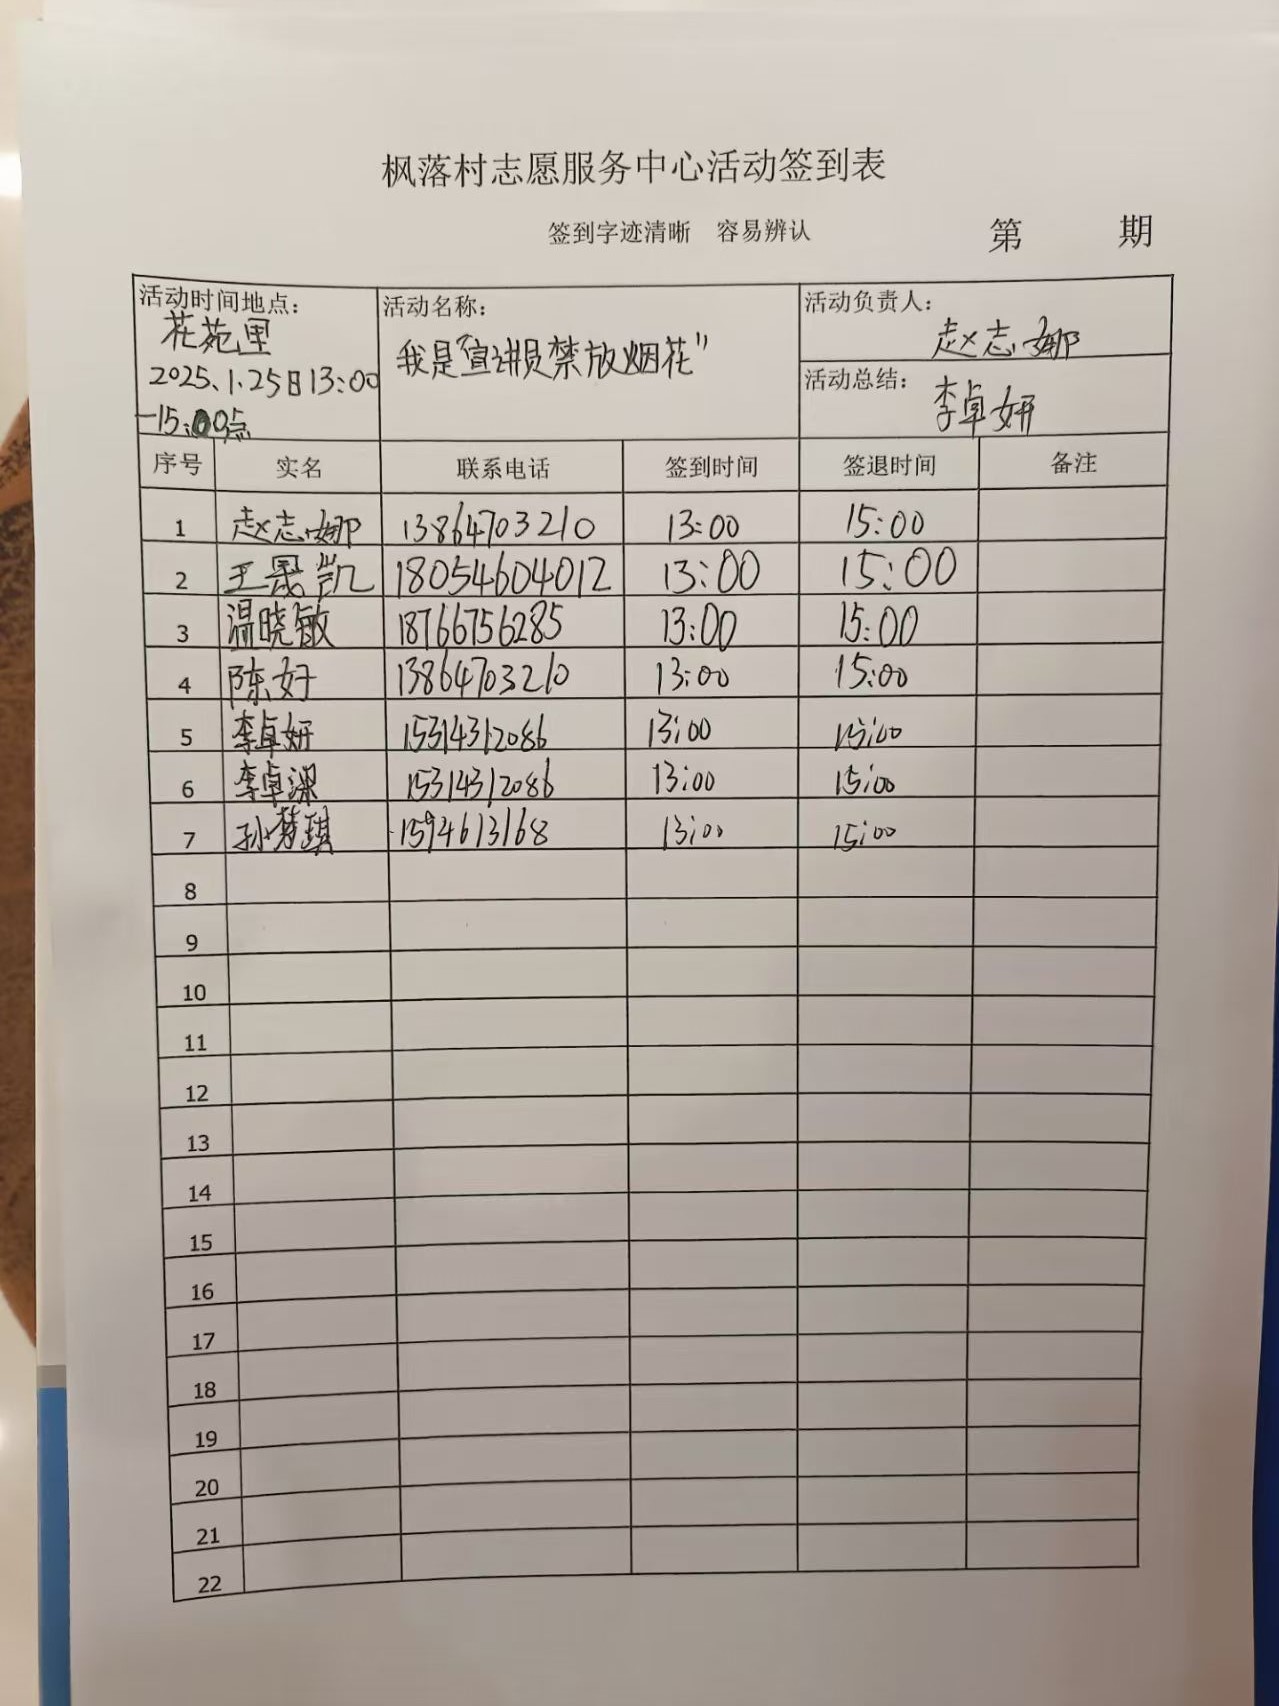 枫落村志愿服务中心活动签到表
签到字迹清晰 容易辨认 第 期
活动时间地点：
花苑里
2025.1.25日13:00
-15:00点
活动名称：
我是"宣讲员禁放烟花"
活动负责人：
赵志娜
活动总结：
李卓妍
序号 实名 联系电话 签到时间 签退时间 备注
1 赵志娜 13864703210 13:00 15:00
2 王晟凯 18054604012 13:00 15:00
3 温晓敏 18766756285 13:00 15:00
4 陈好 13864703210 13:00 15:00
5 李卓妍 15314312086 13:00 15:00
6 李卓深 15314312086 13:00 15:00
7 孙梦琪 1594613168 13:00 15:00
8
9
10
11
12
13
14
15
16
17
18
19
20
21
22